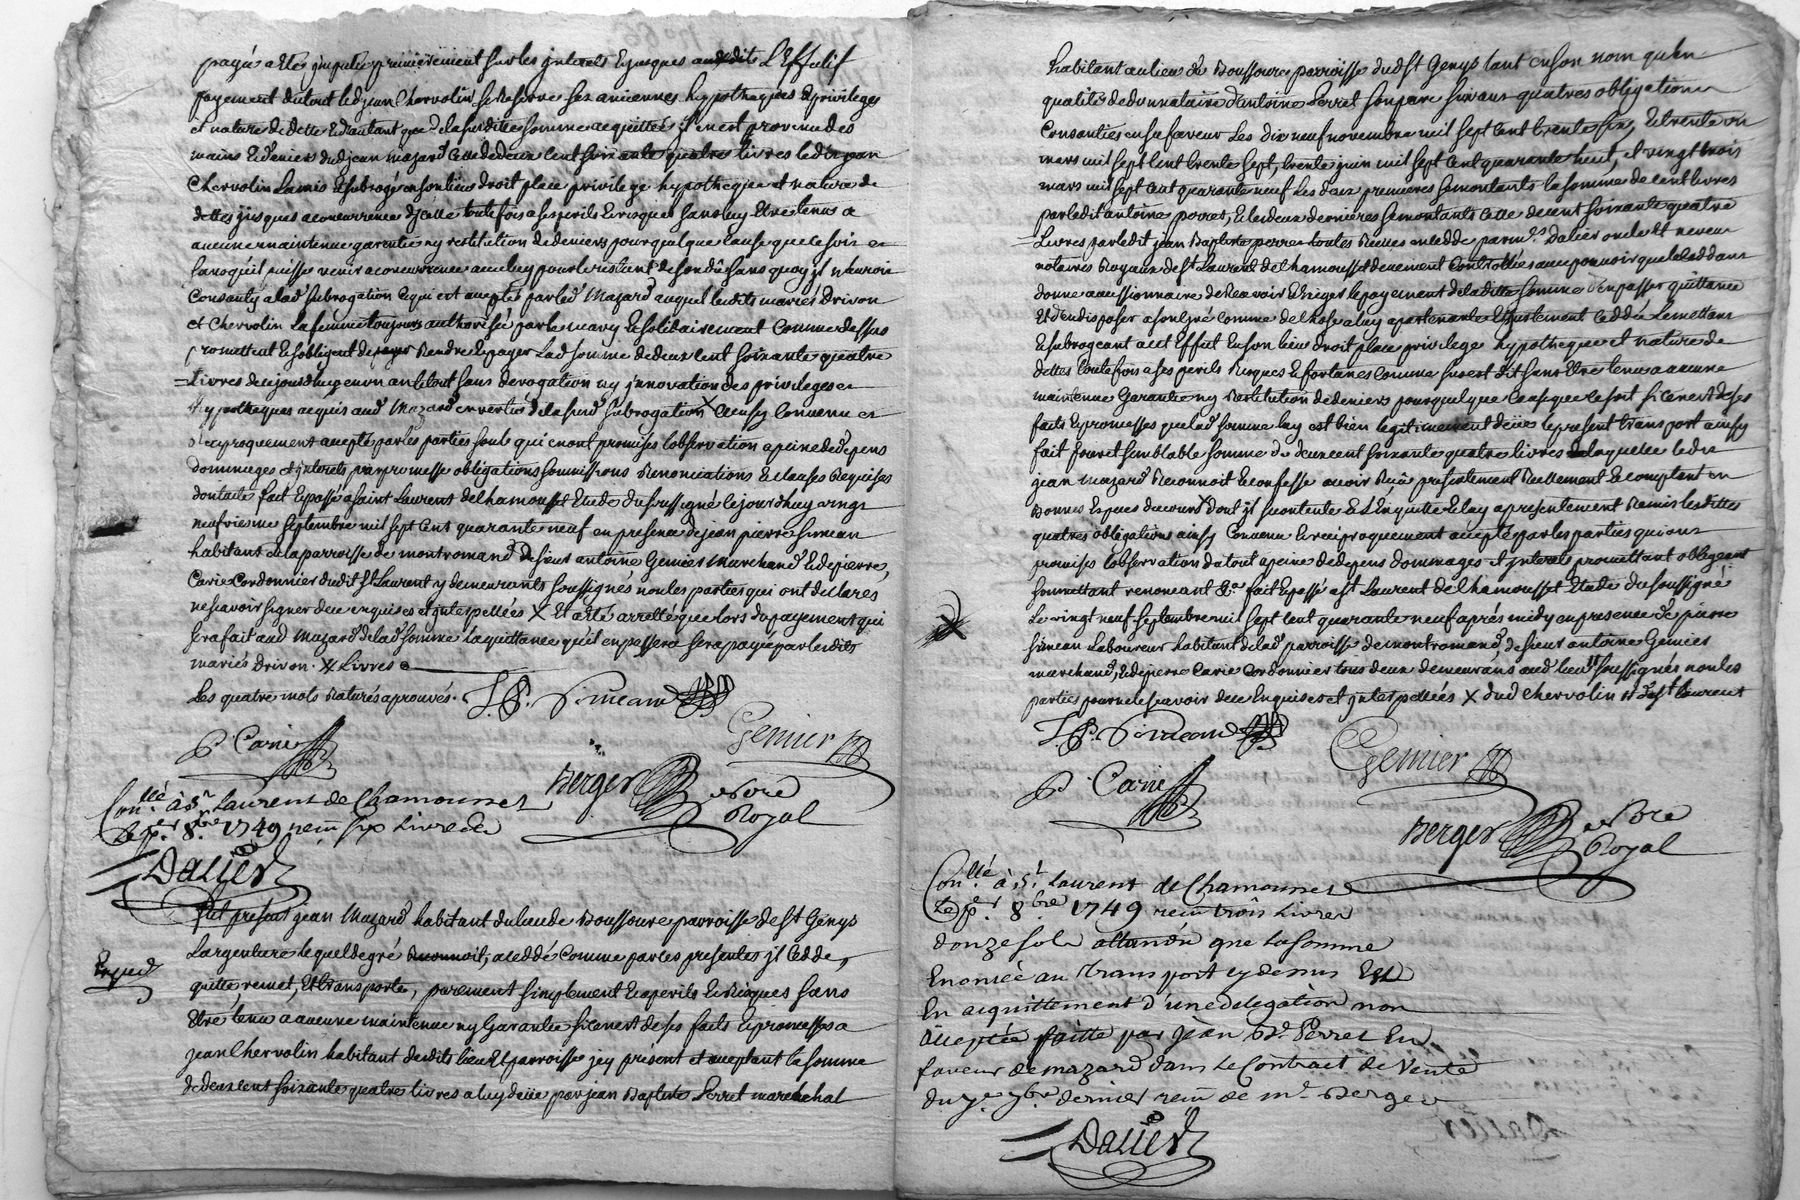 payé a eté jmputé premierement sur les jnterets Ejusques audits L'Effectif
payement du tout led jean Chervolin se Reserve ses anciennes hypotheques Eprivileges
et nature de dette Et d'autant que la susditte somme acquittée jl en est provenu des
mains Et deniers dud jean Mazard Celle de deux cent soixante quatre livres ledit jean
Chervolin Lamis Esubrogé en son lieu droit place privilege hypotheque et nature de
dettes jusques a concurrence djcelle toutefois a ses perils Erisques sans luy Etre tenu a
aucune maintenue garentie ny restitution de deniers pour quelque cause que ce soit et
sans qu'il puisse venir a concurrence avec luy pour le restant de son dû sans quoy jl n'auroit
Consanty a lad subrogation Ce qui est accepté par led Mazard auquel lesdits mariés Drivon
et Chervolin sa femme toujours authorisée par le mary Esolidairement Comme dessus
promettent Esobligent de Rendre Epayer Lad somme de deux cent soixante quatre
Livres de ce jourd'huy en un an le tout sans derogation ny jnnovation des privileges et
hypotheques acquis aud Mazard en vertu de la susd subrogation X Ainsy Convenu et
reciproquement accepté par les parties qui en ont promises l'observation a peine de depens
dommages et jnterets par promesse obligations soumissions Renonciations Et clauses Requises
dont acte fait Epassé a saint Laurent de Chamousset Etude du soussigné le jourd'huy vingt
neufviesme septembre mil sept Cent quarante neuf en presence de jean pierre simean
habitant de la parroisse de montromand de sieur antoine Genier Marchand Et de pierre
Carie Cordonnier dudit St Laurent y demeurants soussignés non les parties qui ont declarés
ne scavoir signer de ce enquises et jnterpellées X Et a eté arretté que lors du payement qui
sera fait aud Mazard de lad somme la quittance qu'il en passera sera payée par lesdits
mariés Drivon. X Livres
Les quatre mots Raturés aprouvés. J. P. Simean
P Carie Genier
Berger Nore Royal
Con.llé à St Laurent de Chamousset
Le p.er 8.bre 1749 reçu six Livres
Dalier
Fut present jean Mazard habitant du lieu de Boussoure parroisse de St Genys
Largentiere lequel de gré a ceddé Comme par ces presentes jl Cedde,
quitte remet, Et transporte, purement simplement Et a perils Erisques sans
Etre tenu a aucune maintenue ny Garantie si ce n'est de ses faits Epromesses a
jean Chervolin habitant desdits lieu Et parroisse jcy présent et acceptant la somme
de deux cent soixante quatre livres a luy deüe par jean Baptiste Perret marechal
Exped
habitant au lieu de Boussoure parroisse dud St Genys tant en son nom qu'en
qualité de donnataire d'antoine Perret son pere suivant quatres obligations
Consanties en sa faveur Les dix neuf novembre mil sept Cent trente six, Et trente un
mars mil sept Cent trente sept, trente juin mil sept Cent quarante huit, et vingt trois
mars mil sept Cent quarante neuf Les deux premieres se montants la somme de cent livres
par ledit antoine perret, Et les deux dernieres se montants Celle de cent soixante quatre
Livres par ledit jean Baptiste perret toutes Reçues par Mrs Dalier oncle Et neveu
notaires Royaux de St Laurent de Chamousset deuement Controllées avec pouvoir que led
donne a cessionnaire de Recevoir Exiger le payement de laditte somme d'en passer quittance
Et d'en disposer a son gré Comme de chose a luy apartenante Ejustement Ceddée Le mettant
Esubrogeant a cet Effet En son lieu droit place privilege hypotheque et nature de
dettes toutefois a ses perils Risques Et fortunes Comme sus est dit sans Etre tenu a aucune
maintenue Garantie ny Restitution de deniers pour quelque Cause que ce soit si ce n'est de ses
faits Epromesses que lad somme luy est bien legitimement deüe le present transport ainsy
fait pour et semblable somme de deux cent soixante quatre livres de laquelle ledit
jean Mazard Reconnoit Econfesse avoir Reçû presentement Reellement Ecomptant en
Bonnes Especes du cours X Dont jl se contente Et l'En quitte Et luy a presentement Remis lesdittes
quatres obligations ainsy Convenu Et reciproquement accepté par les parties qui ont
promises l'observation du tout a peine de depens dommages et jnterets promettant obligeant
soumettant renonceant &a fait Epassé a St Laurent de Chamousset Etude du soussigné
Le vingt neuf septembre mil sept Cent quarante neuf aprés midy en presence de jean pierre
simean Laboureur habitant de lad parroisse de montromand, de sieur antoine Genier
marchand, Et de pierre Carie Cordonnier tous deux demeurans aud lieu soussignés non les
parties pour ne scavoir de ce Enquises et jnterpellées X dud Chervolin dud St Laurent
J. P. Simean
Genier
P Carie
Berger Nore Royal
Con.llé à St Laurent de Chamousset
Le p.er 8bre 1749 reçu trois Livres
douze sols attandu que La somme
Enoncée au Transport cy dessus Est
En acquittement d'une delegation non
Acceptée faitte par Jean B.te Perret En
faveur de mazard dans Le Contract de Vente
du 7.e 7bre dernier reçu de M.e Berger
Dalier